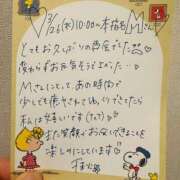 3/26(木)10:00〜本指名Mさん
とってもお久しぶりの再会でした
変わらずお元気そうで良かった…♡
Mさんにとって、あの時間で
少しでも癒やされてゆっくりできたなら
私は幸せいです(たて)♡
また笑顔でお会いできることを
楽しみにしています♡